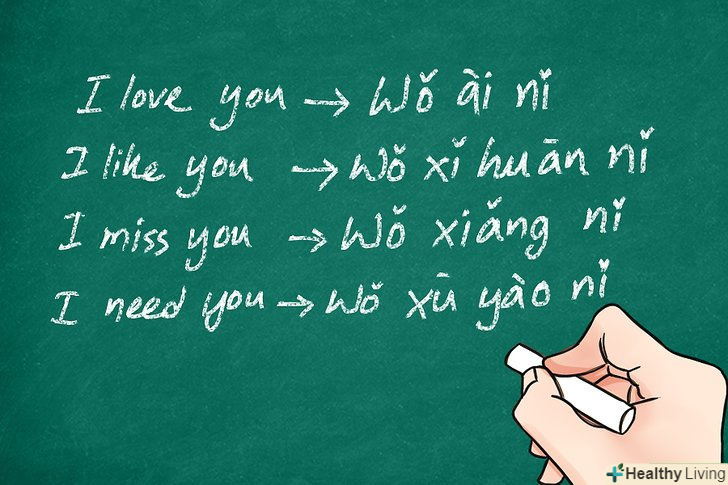 I love you → Wǒ ài nǐ
I like you → Wǒ xǐ huān nǐ
I miss you → Wǒ xiǎng nǐ
I need you → Wǒ xū yào nǐ
Healthy Living